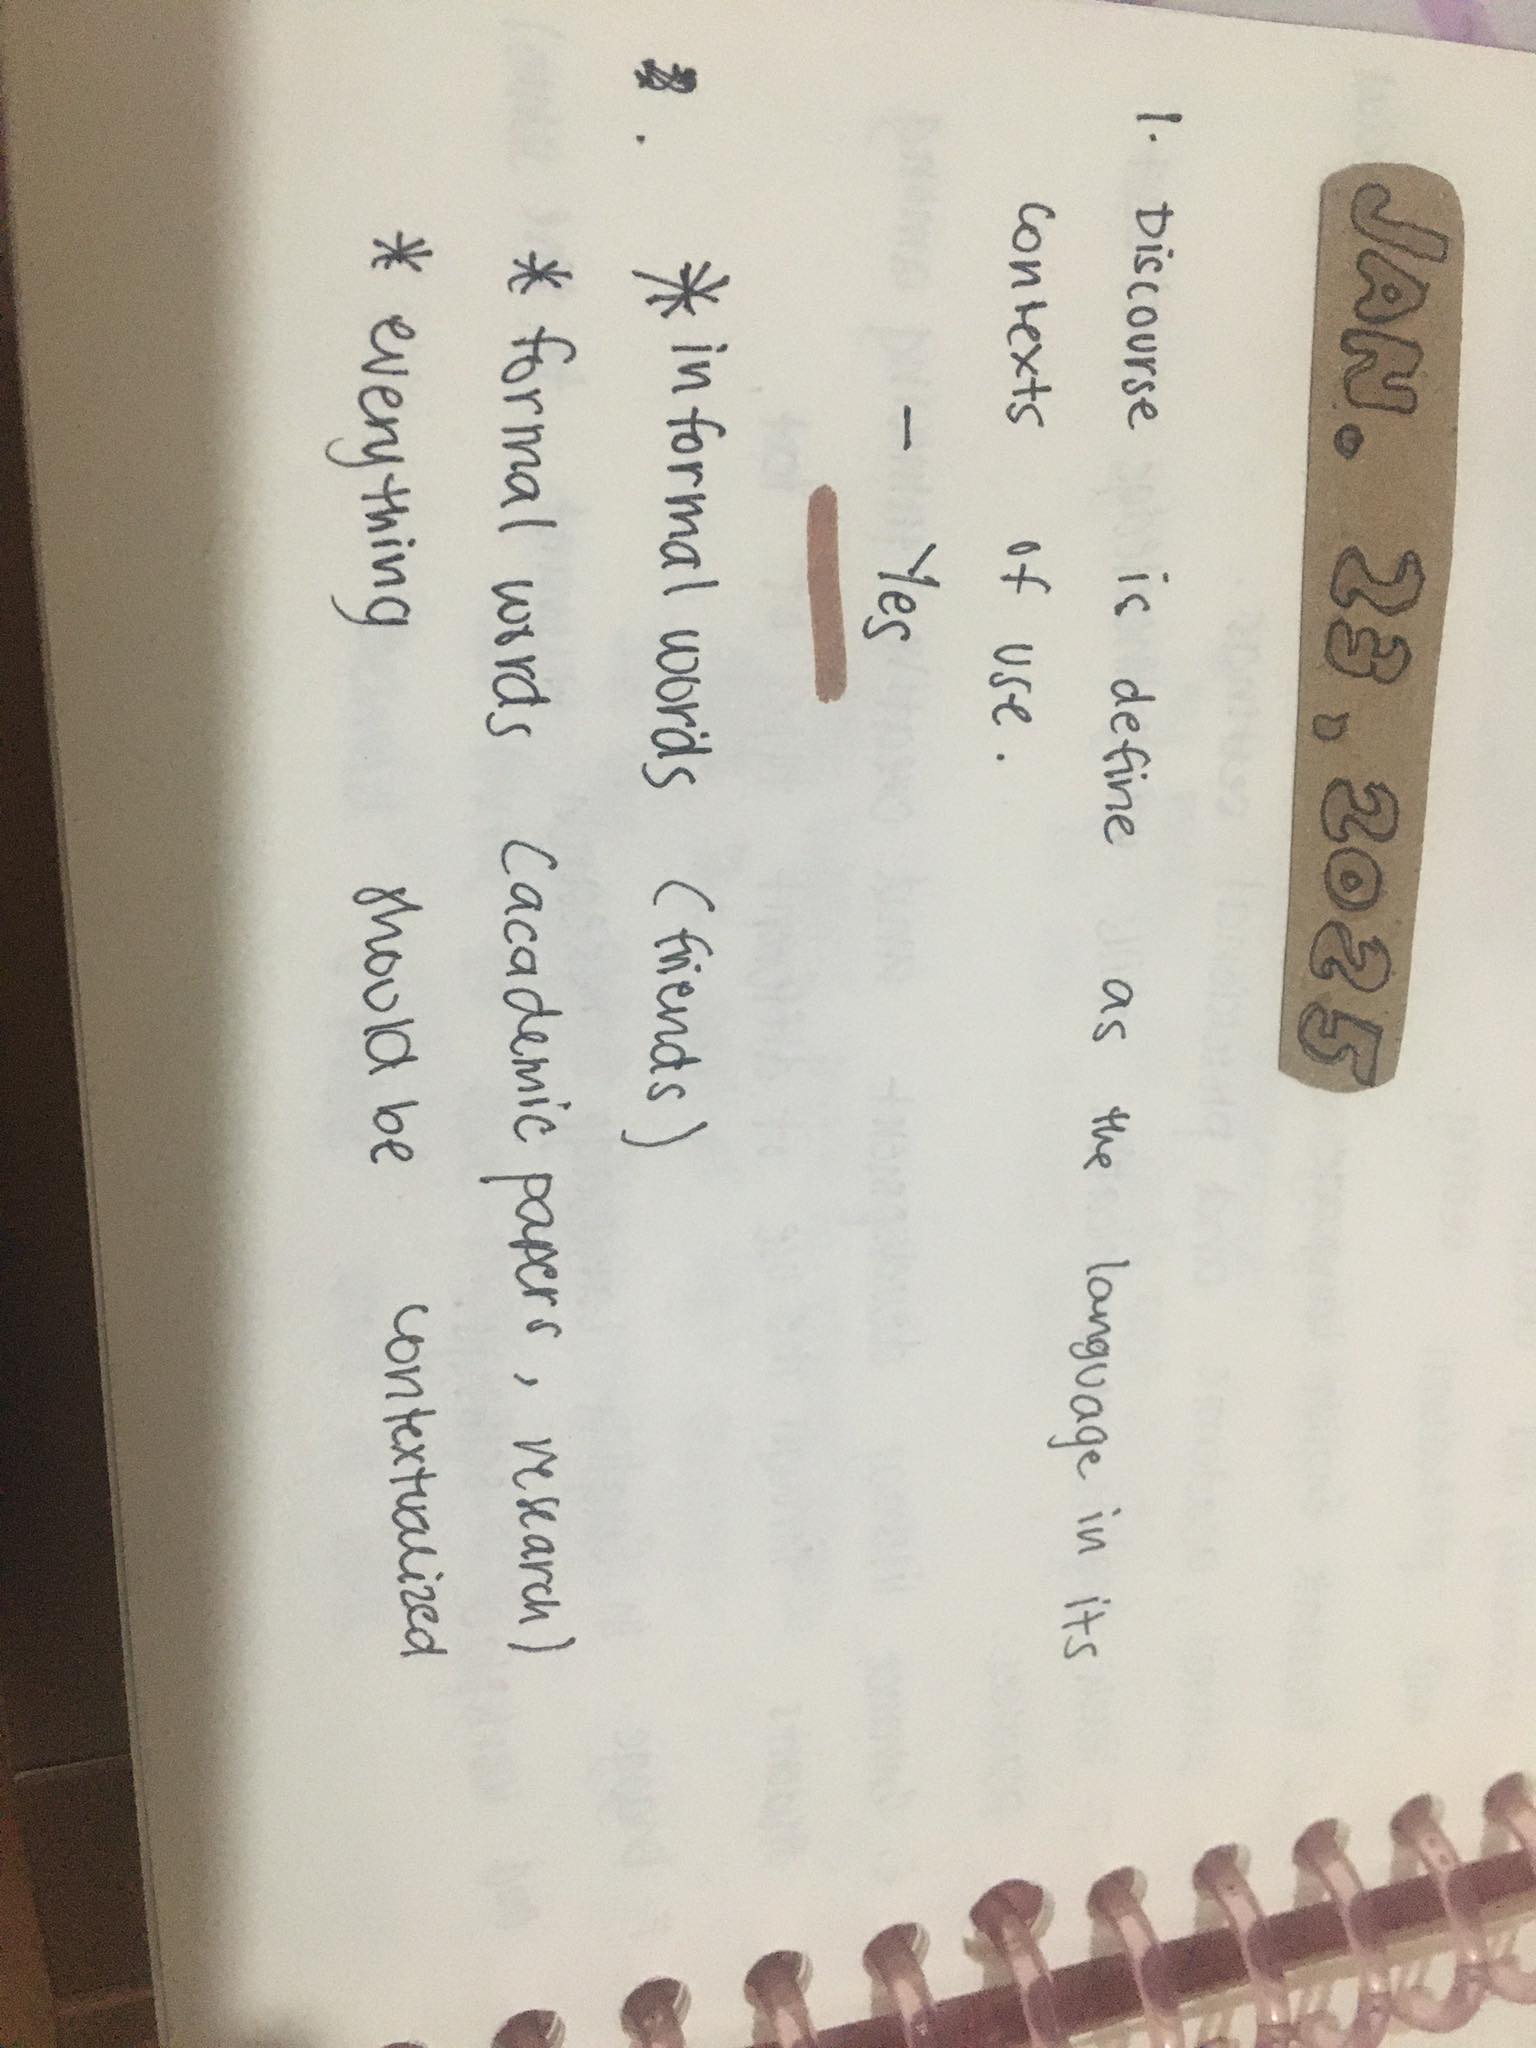 JAN. 23, 2025
1. Discourse is define as the language in its
contexts of use.
- Yes
* informal words (friends)
* formal words (academic papers, research)
* everything should be contextualized